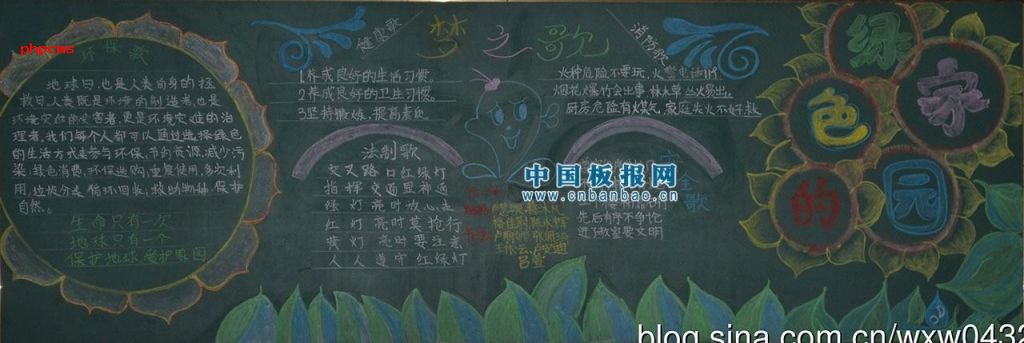 phpcms
环保歌
地球日，也是人类自身的拯
救日。人类既是环境的制造者，也是
环境灾难的受害者，更是环境灾难的治
理者。我们每个人都可以通过选择绿色
的生活方式来参与环保，节约资源，减少污
染，绿色消费，环保选购，重复使用，多次利
用，垃圾分类，循环回收，救助物种，保护
自然。
生命只有一次
地球只有一个
保护地球 爱护家园
健康歌
梦之歌
消防歌
1.养成良好的生活习惯。
2.养成良好的卫生习惯。
3.坚持锻炼，提高素质
火种危险不要玩，火警电话119
烟花爆竹会出事 林木草丛火易出。
厨房危险有煤气，家庭失火不好救
法制歌
交叉路口红绿灯
指挥交通显神通
绿灯亮时放心走
红灯亮时莫抢行
黄灯亮时要注意
人人遵守红绿灯
全
歌
先后有序不争抢
进了教室要文明
中国板报网
www.cnbanbao.cn
绿
色
家
的
园
blog.sina.com.cn/wxw0432